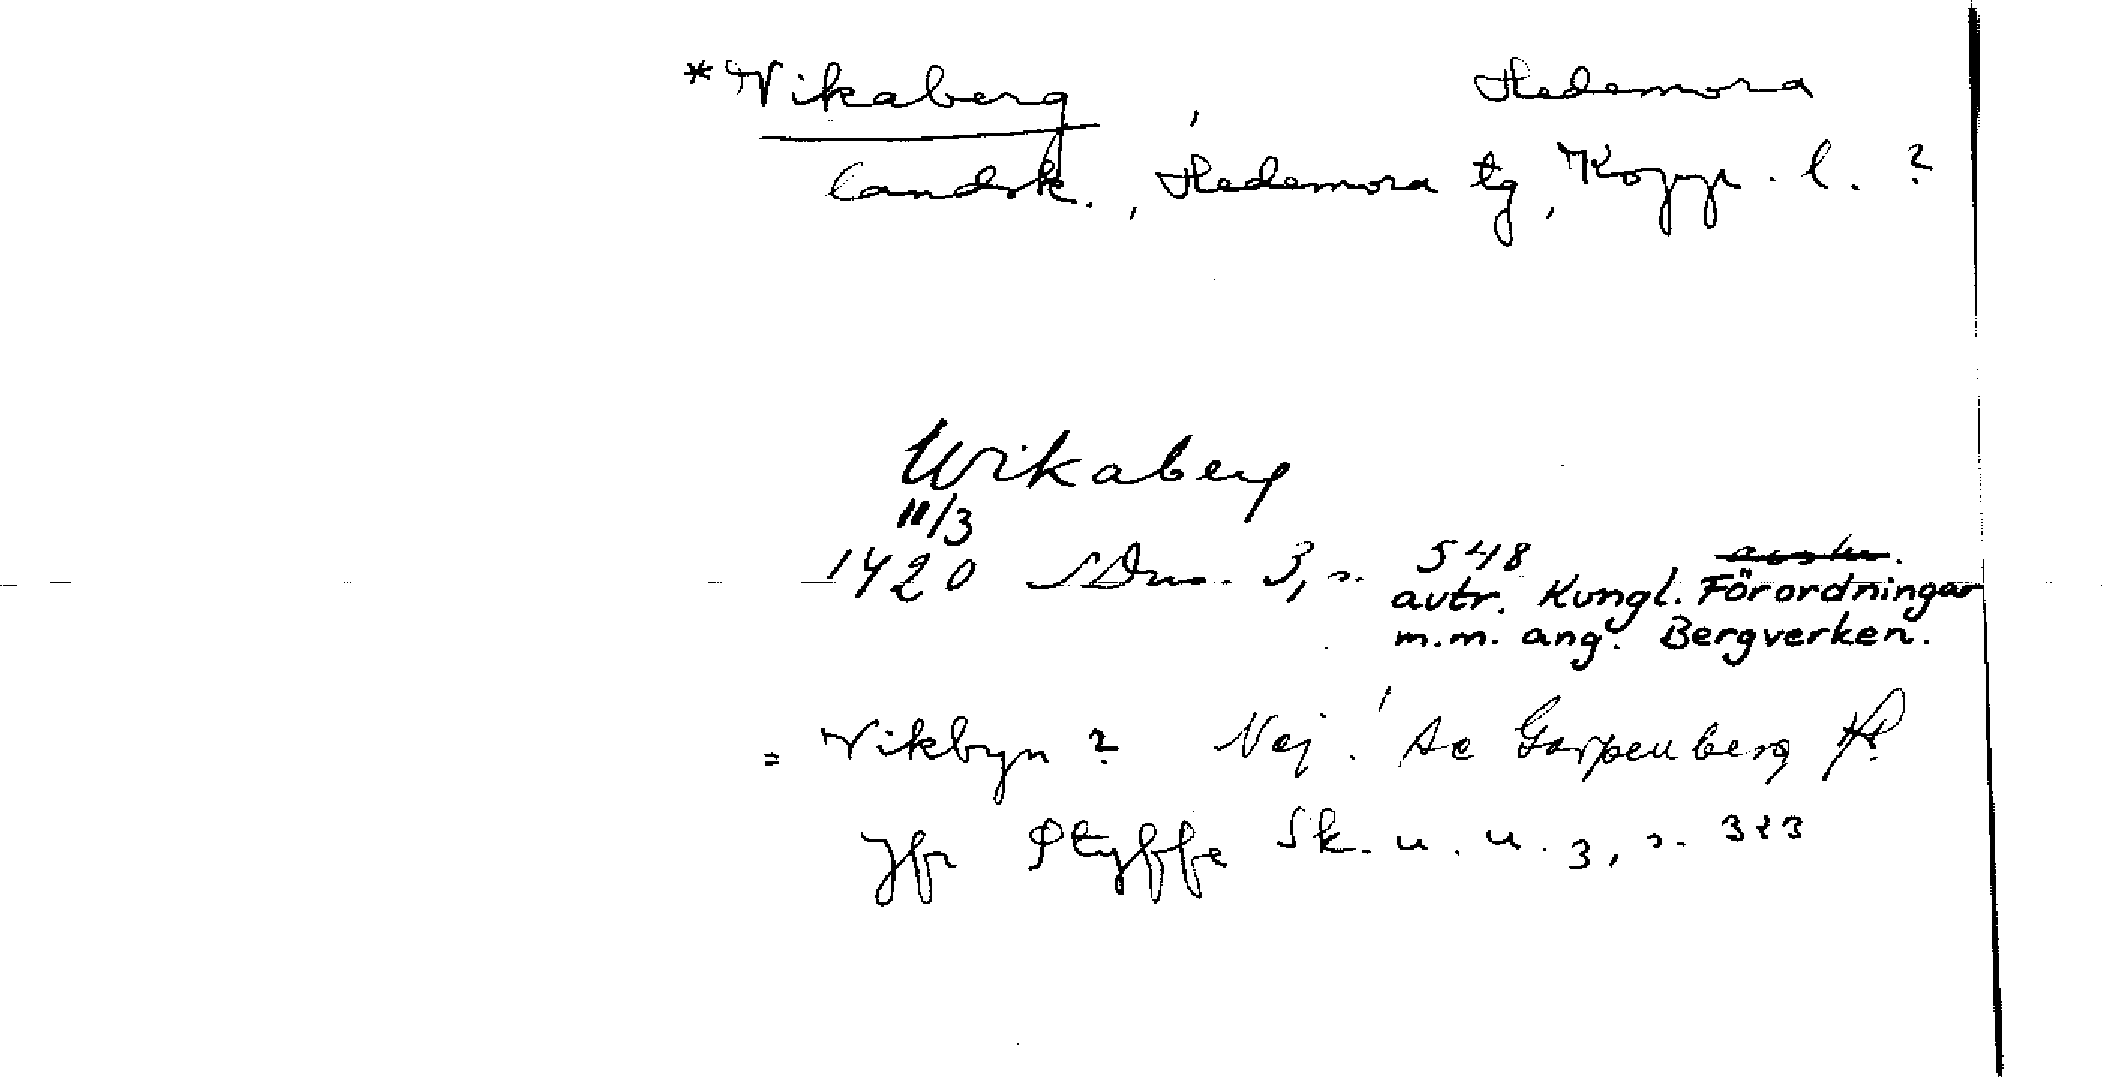 *Vikaberg, Hedemora
landsk., Hedemora tg, Kopp. l. ?
Wikaberg
11/3
1420 SDns. 3, s. 548
avtr. Kungl. Förordningar
m.m. ang. Bergverken.
= Vikbyn ? Nej! Se Garpenberg
Jfr Styffe Sk. u. u. 3, s. 323